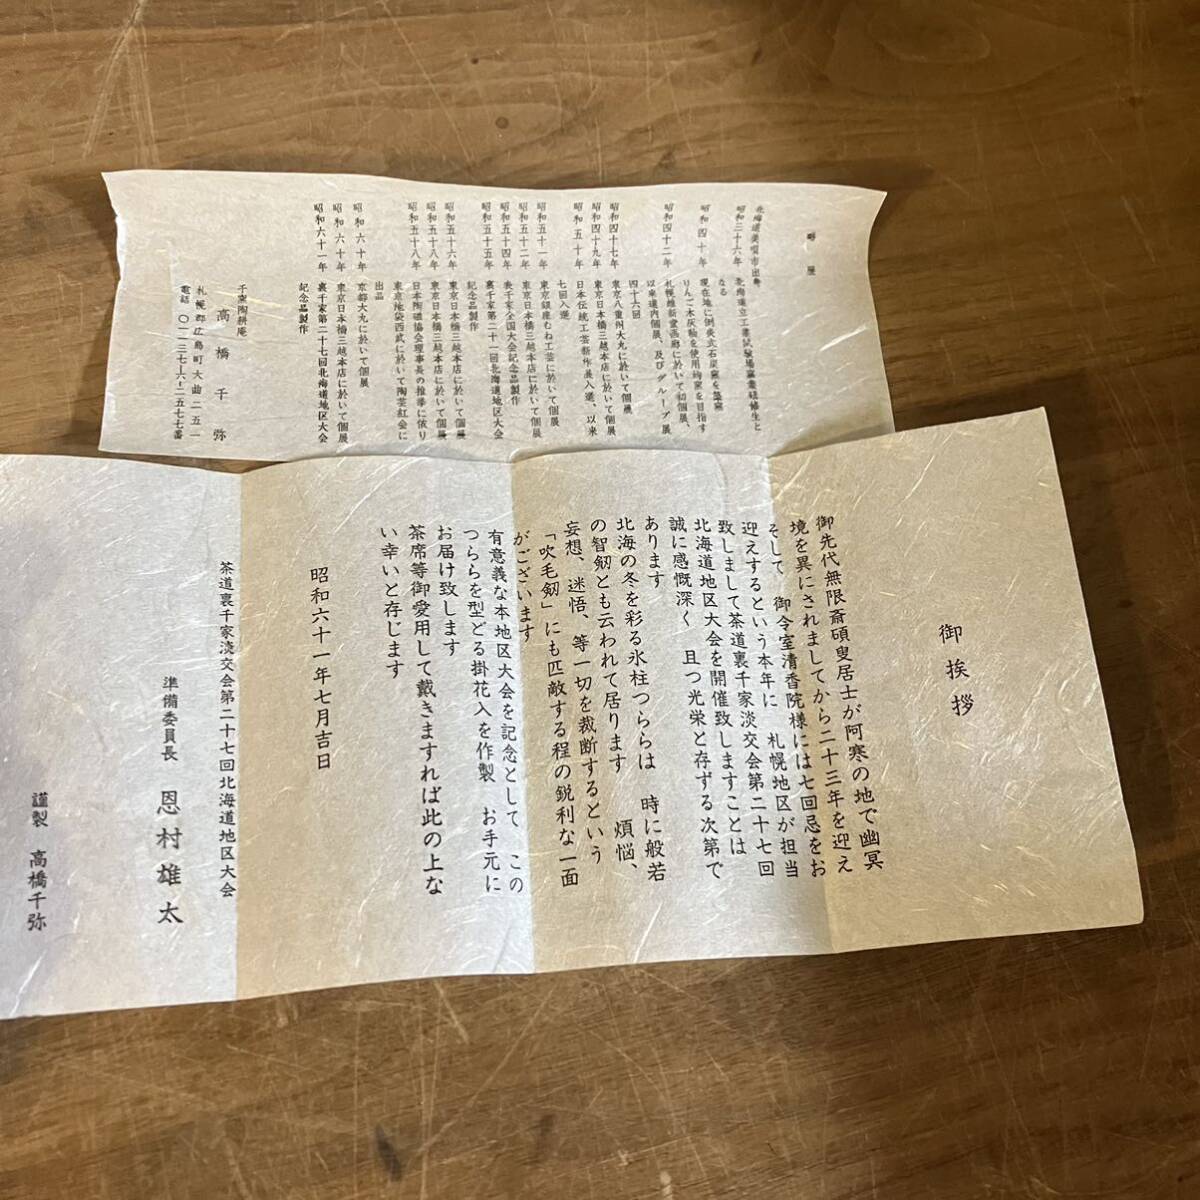 略歴
北海道美唄市出身
昭和三十六年 北海道立工業試験場窯業研修生と
なる
昭和四十年 現在地に倒炎式石炭窯を築窯
りんご木灰釉を使用均窯を目指す
昭和四十二年 札幌維新堂画廊に於いて初個展、
以来道内個展、及びグループ展
四十六回
昭和四十七年 東京八重州大丸に於いて個展
昭和四十九年 東京日本橋三越本店に於いて個展
昭和五十年 日本伝統工芸新作展入選、以来
七回入選
昭和五十一年 東京銀座むね工芸に於いて個展
昭和五十二年 東京日本橋三越本店に於いて個展
昭和五十四年 表千家全国大会記念品製作
昭和五十五年 裏千家第二十一回北海道地区大会
記念品製作
昭和五十六年 東京日本橋三越本店に於いて個展
昭和五十八年 東京日本橋三越本店に於いて個展
昭和五十八年 日本陶磁協会理事長の推挙に依り
東京池袋西武に於いて陶芸紅会に
出品
昭和六十年 京都大丸に於いて個展
昭和六十年 東京日本橋三越本店に於いて個展
昭和六十一年 裏千家第二十七回北海道地区大会
記念品製作
千窯陶耕庵
高橋千弥
札幌郡広島町大曲二五一
電話 〇一一三七ー六ー二五七七番
御挨拶
御先代無限斎碩叟居士が阿寒の地で幽冥
境を異にされましてから二十三年を迎え
そして 御令室清香院様には七回忌をお
迎えするという本年に 札幌地区が担当
致しまして茶道裏千家淡交会第二十七回
北海道地区大会を開催致しますことは
誠に感慨深く 且つ光栄と存ずる次第で
あります
北海の冬を彩る氷柱つららは 時に般若
の智剱とも云われて居ります 煩悩、
妄想、迷悟、等一切を裁断するという
「吹毛剱」にも匹敵する程の鋭利な一面
がございます
有意義な本地区大会を記念として この
つららを型どる掛花入を作製 お手元に
お届け致します
茶席等御愛用して戴きますれば此の上な
い幸いと存じます
昭和六十一年七月吉日
茶道裏千家淡交会第二十七回北海道地区大会
準備委員長 恩村雄太
謹製 高橋千弥